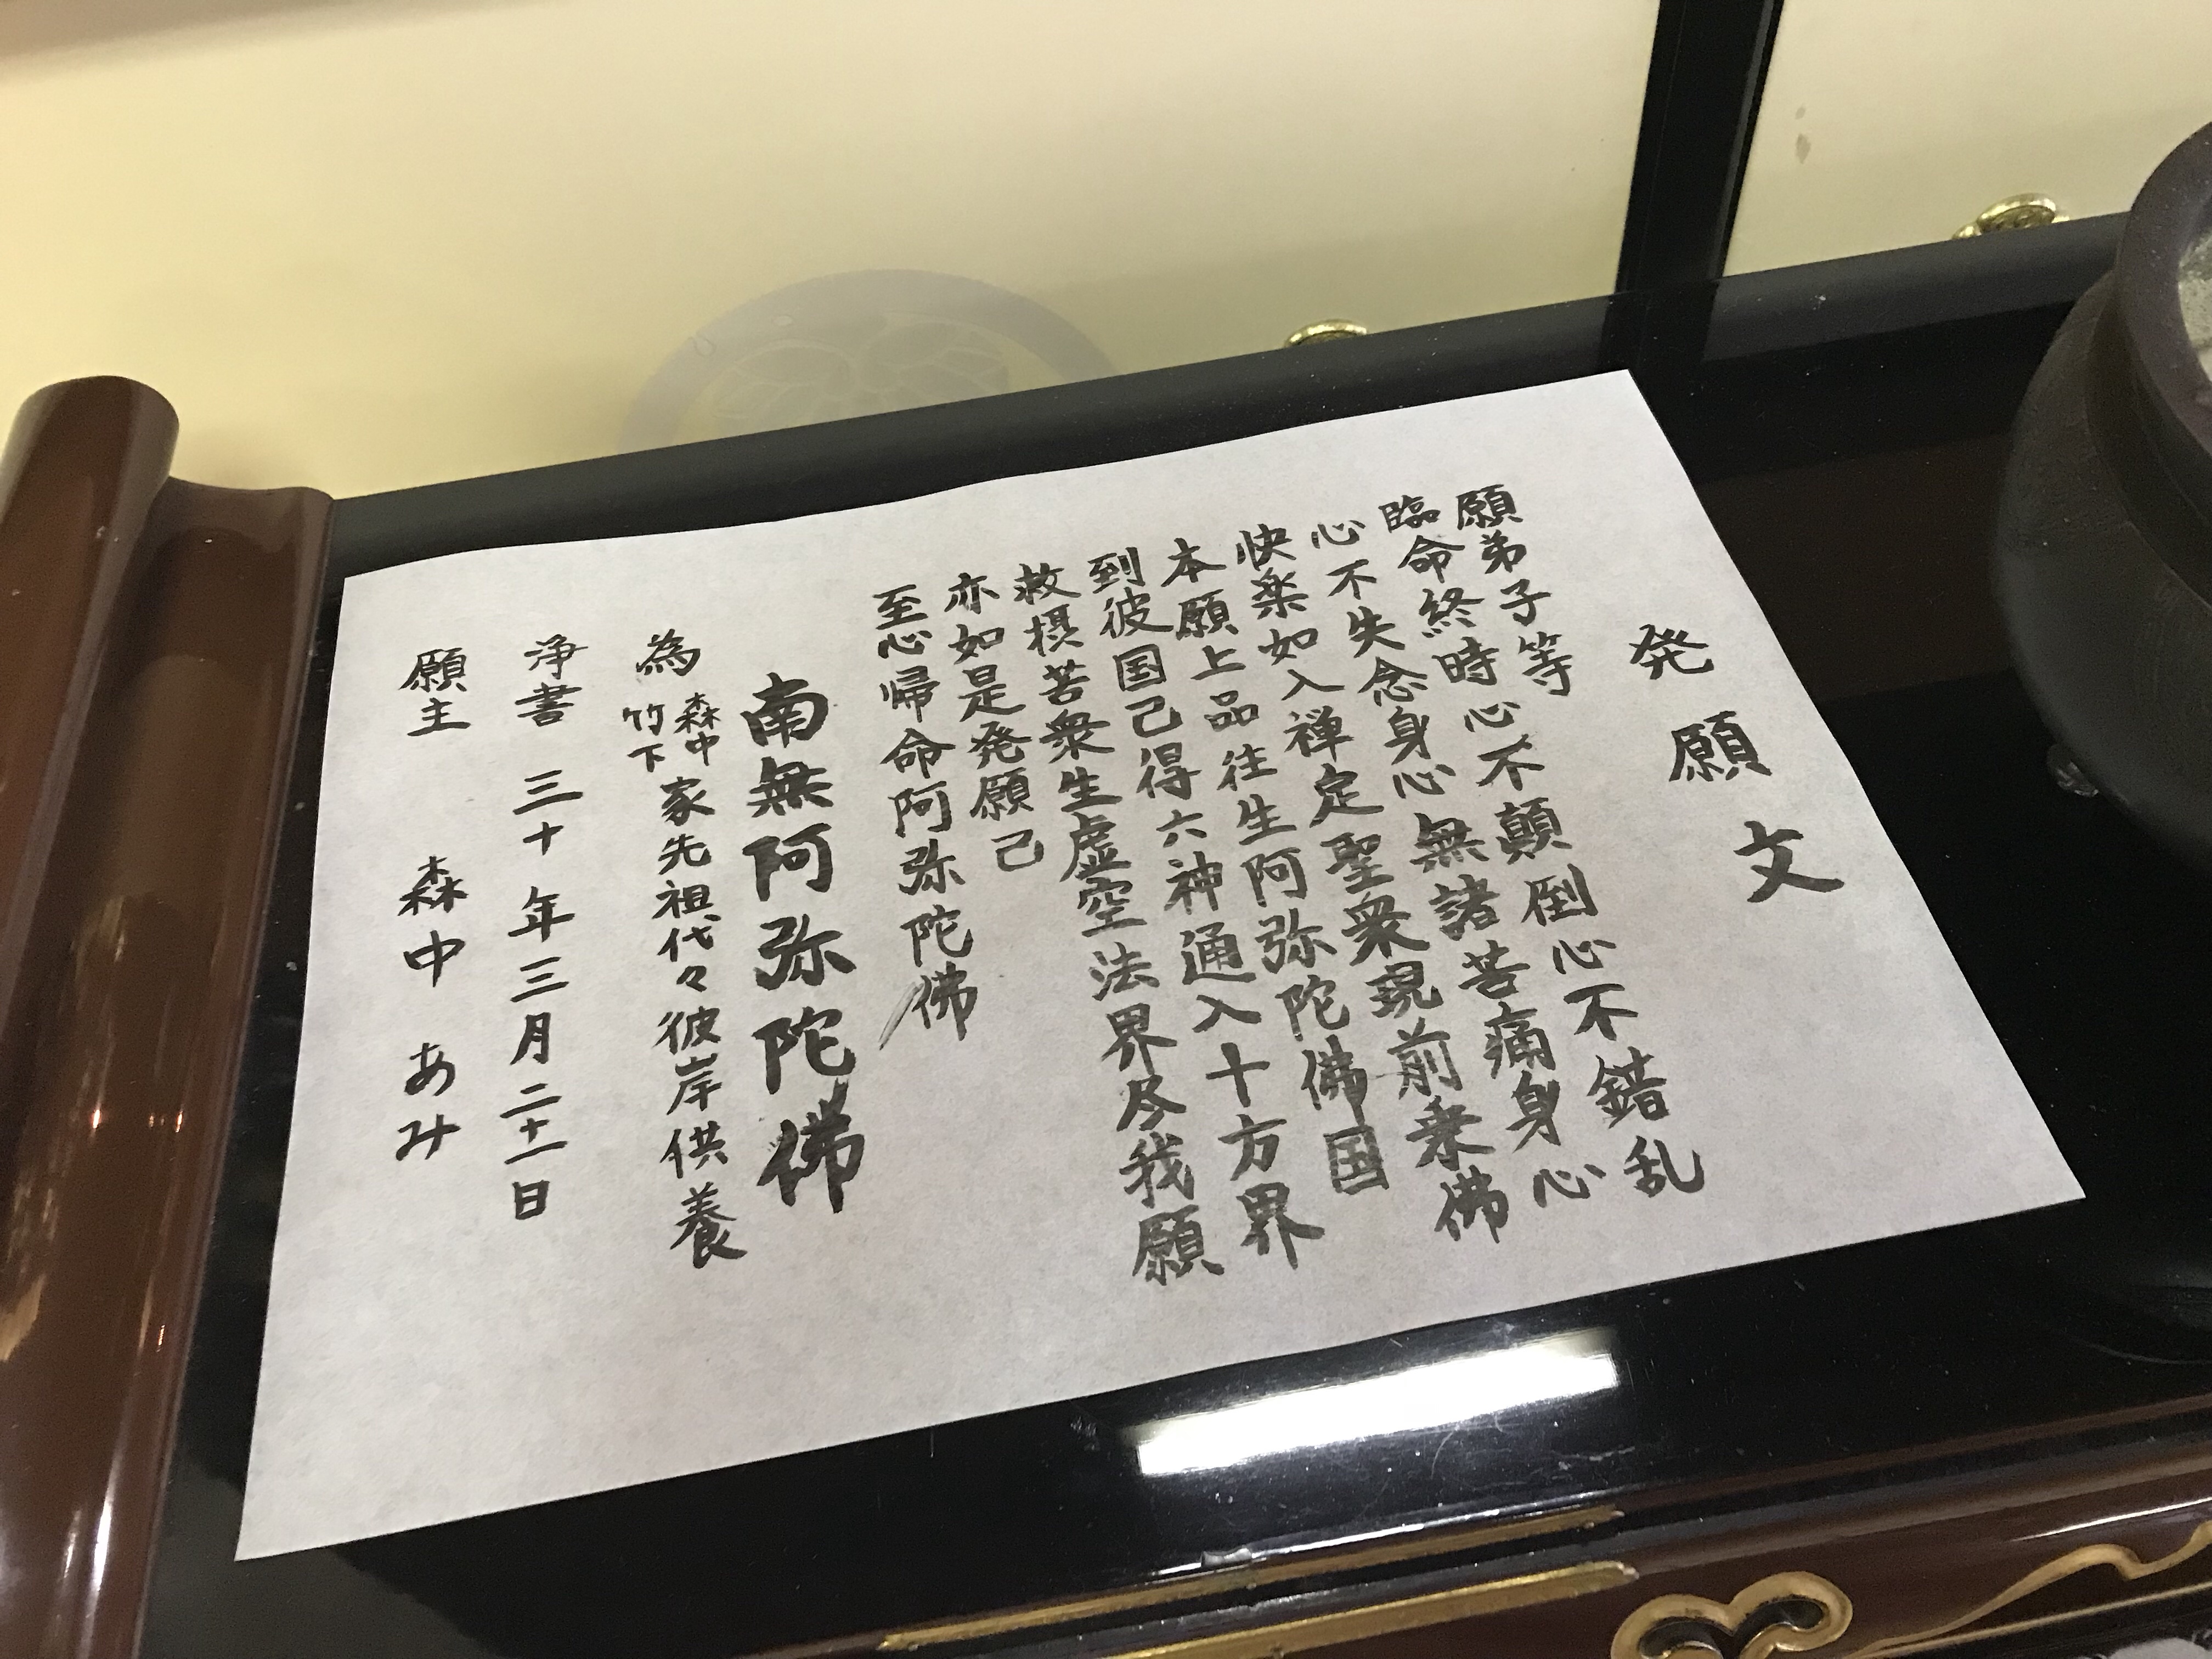 発願文
願弟子等
臨命終時心不顛倒心不錯乱
心不失念身心無諸苦痛身心
快楽如入禅定聖衆現前乗佛
本願上品往生阿弥陀佛国
到彼国己得六神通入十方界
救摂苦衆生虚空法界尽我願
亦如是発願己
至心帰命阿弥陀佛
南無阿弥陀佛
為 森中 竹下 家先祖代々彼岸供養
浄書 三十年三月二十一日
願主 森中 あみ